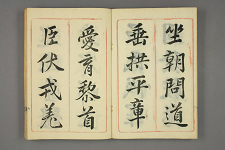 坐朝問道
垂拱平章
愛育黎首
臣伏戎羌